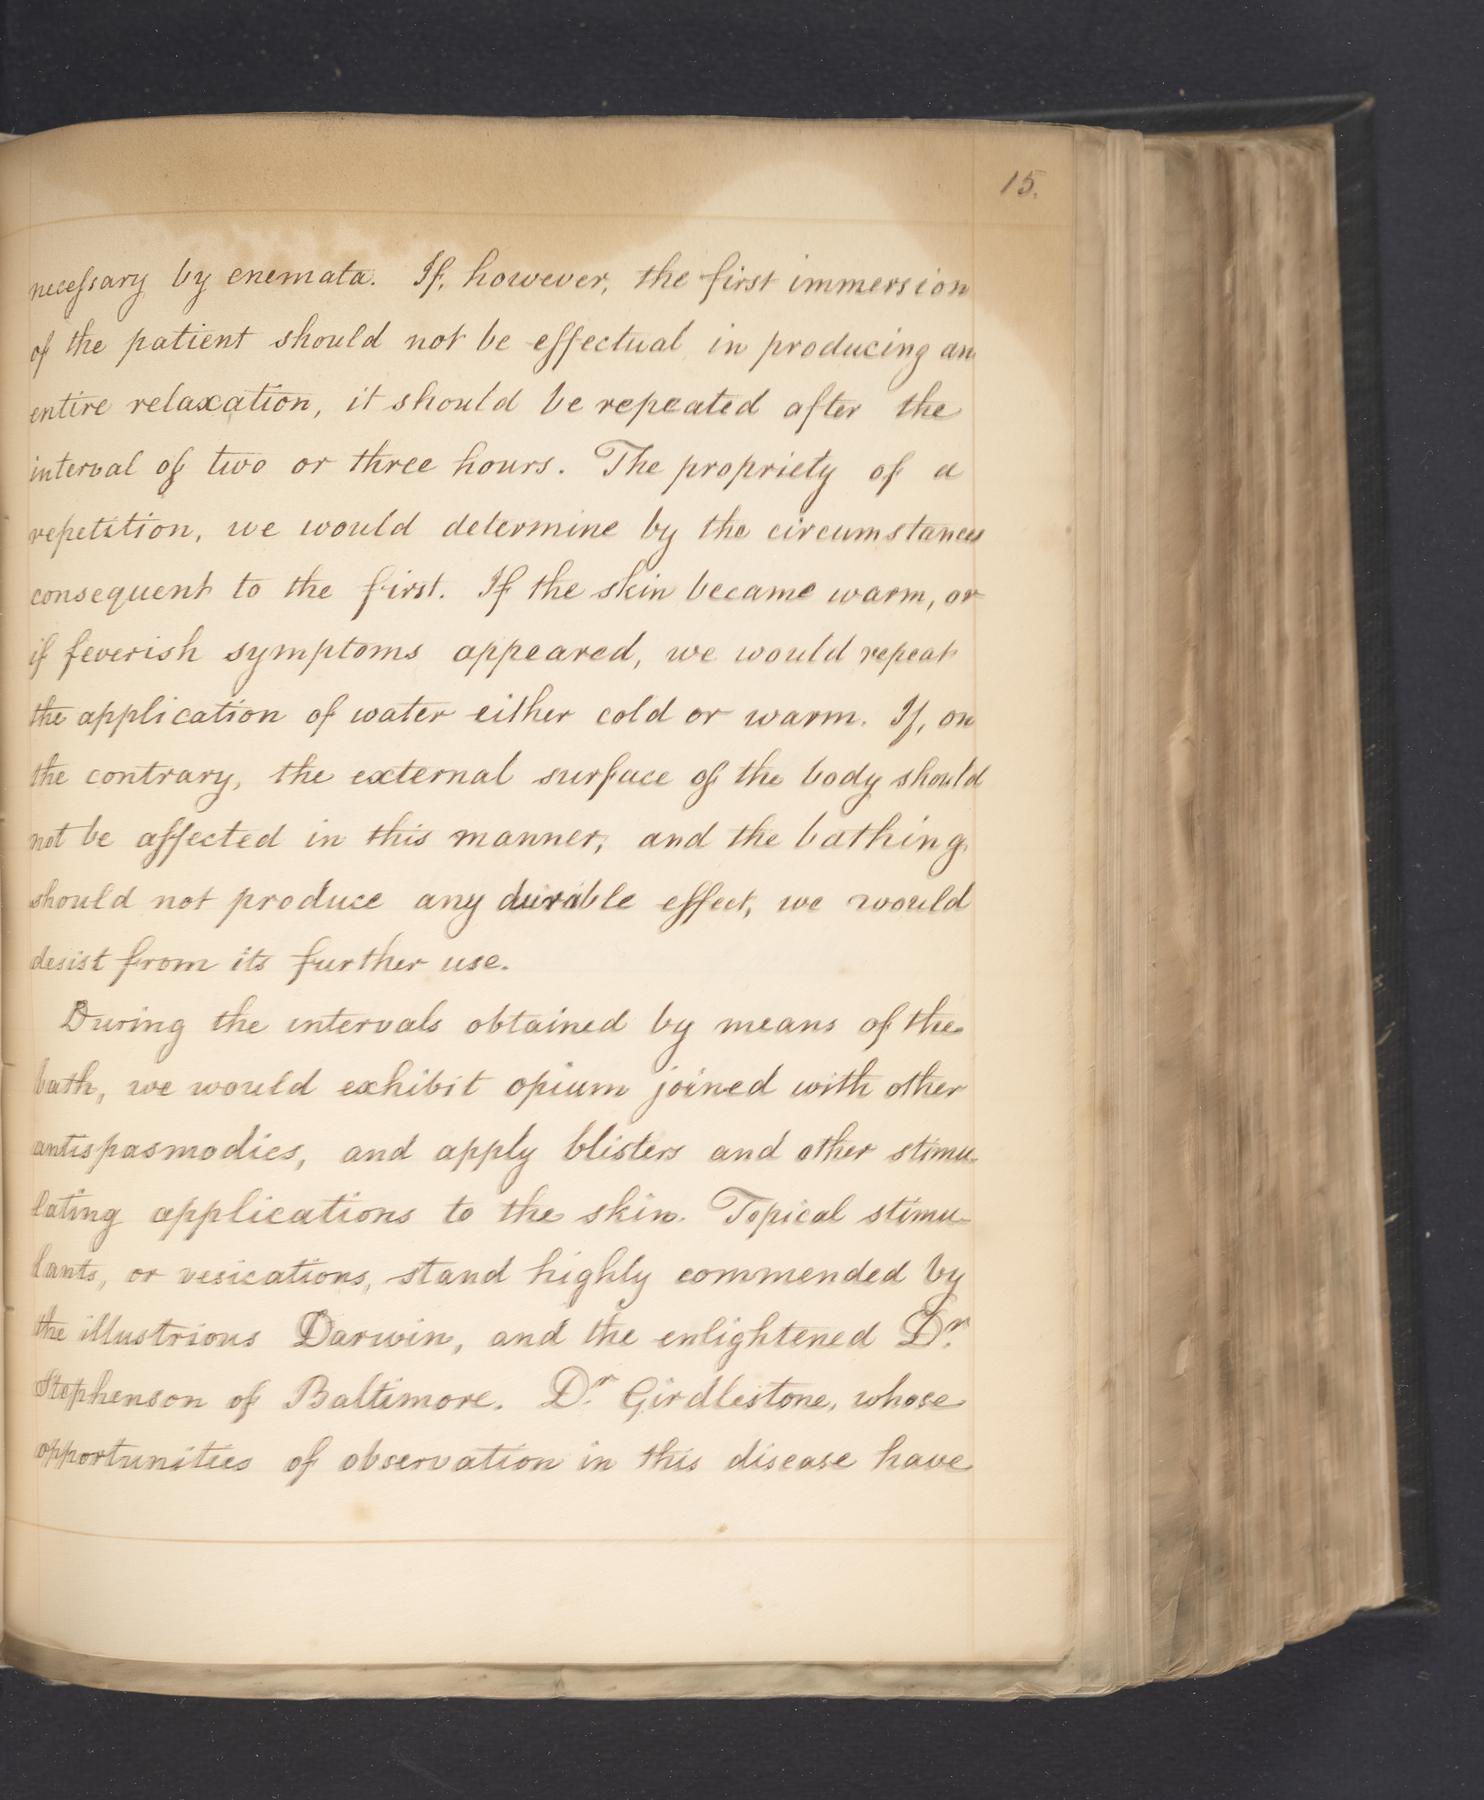 15.
necessary by enemata. If, however, the first immersion
of the patient should not be effectual in producing an
entire relaxation, it should be repeated after the
interval of two or three hours. The propriety of a
repetition, we would determine by the circumstances
consequent to the first. If the skin became warm, or
if feverish symptoms appeared, we would repeat
the application of water either cold or warm. If, on
the contrary, the external surface of the body should
not be affected in this manner, and the bathing
should not produce any durable effect, we would
desist from its further use.
During the intervals obtained by means of the
bath, we would exhibit opium joined with other
antispasmodics, and apply blisters and other stimu-
lating applications to the skin. Topical stimu-
lants, or vesications, stand highly commended by
the illustrious Darwin, and the enlightened Dr.
Stephenson of Baltimore. Dr. Girdlestone, whose
opportunities of observation in this disease have